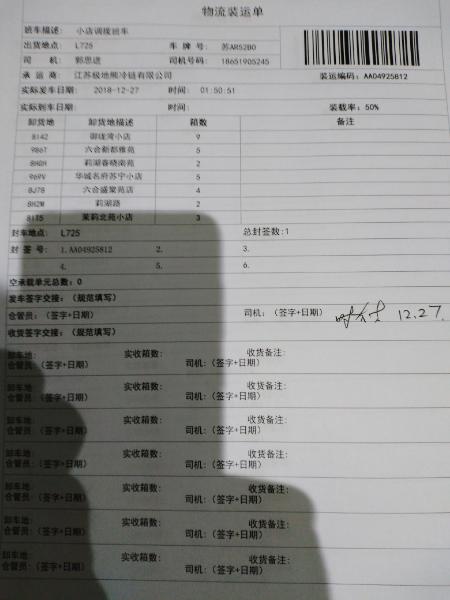 物流装运单
班车描述: 小店调拨班车
出货地点: L725 车牌号: 苏AR52B0
司机: 郭思送 司机号码: 18651905245
承运商: 江苏极地熊冷链有限公司 装运编码: AA04925812
实际发车日期: 2018-12-27 时间: 01:50:51
实际到车日期: 时间: 装载率: 50%
卸货地 卸货地描述 箱数 备注
8142 御珑湾小店 9
986T 六合新都雅苑 5
8H0H 莉湖春晓南苑 2
969V 华城名府苏宁小店 5
8J78 六合盛棠苑店 4
8H2M 莉湖路 2
81T5 茉莉北苑小店 3
封车地点: L725 总封签数:1
封签号: 1.AA04925812 2. 3.
4. 5. 6.
空承载单元总数: 0
发车签字交接: (规范填写)
仓管员: (签字+日期) 司机: (签字+日期) 12.27.
收货签字交接: (规范填写)
卸车地: 实收箱数: 收货备注:
仓管员: (签字+日期) 司机: (签字+日期)
卸车地: 实收箱数: 收货备注:
仓管员: (签字+日期) 司机: (签字+日期)
卸车地: 实收箱数: 收货备注:
仓管员: (签字+日期) 司机: (签字+日期)
卸车地: 实收箱数: 收货备注:
仓管员: (签字+日期) 司机: (签字+日期)
卸车地: 实收箱数: 收货备注:
仓管员: (签字+日期) 司机: (签字+日期)
卸车地: 实收箱数: 收货备注:
仓管员: (签字+日期) 司机: (签字+日期)
卸车地: 实收箱数: 收货备注:
仓管员: (签字+日期) 司机: (签字+日期)